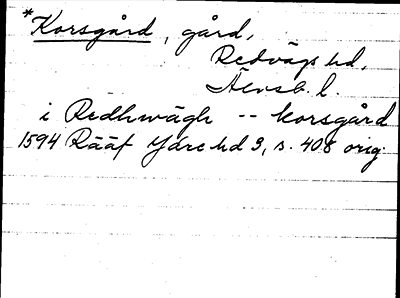 *Korsgård, gård,
Redvägs hd,
Älvsb. l.
i Redhwägh -- korsgård
1594 Rääf Ydre hd 3, s. 408 orig.